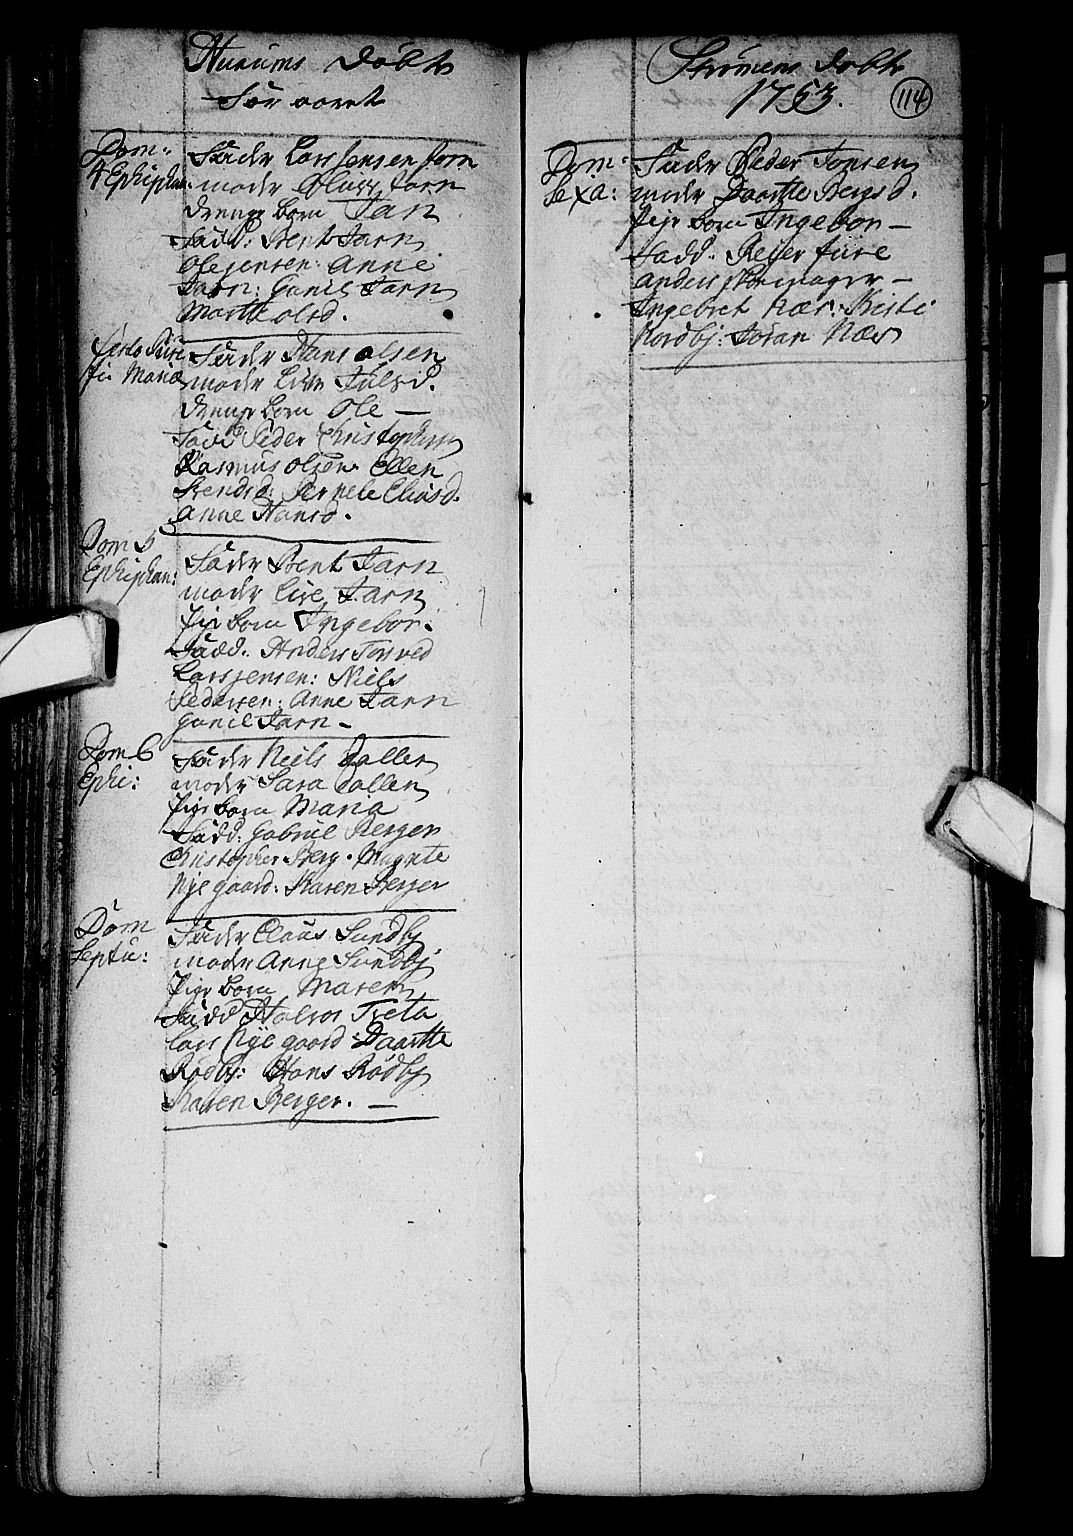 Hurums Døbte
for aaret
Dom:
4 Ephiphan:
Fader Lars Jensen Tarn
moder Oluff Tarn
drenge born Jan
Fadd: Bent Tarn
Ole Jensen: Anne
Tarn: Gunil Tarn
Marthe Olsd.
Festo Puri
fic Mariæ
Fader Hans Olsen
moder Live Juelsd.
drenge born Ole —
Fadd Peder Christophers
Rasmus Olsen. Ellen
Svendsd: Pernele Eliasd.
Anne Hansd.
Dom 5
Ephiphan:
Fader Bent Tarn
moder Live Tarn
Pige born Ingebor.
Fadd: Anders Tosved
Lars Jensen: Niels
Pedersen: Anne Tarn
Gunil Tarn —
Dom 6
Ephi:
Fader Niels Daller
moder Sara Daller
Pige born Maria
Fadd: Gabriel Berger
Christopher Berg. Magrete
Nye gaard: Karen Berger
Dom
Septu:
Fader Claus Sundby
moder Anne Sundby
Pige born Maren
Fadd Halvor Treta
Lars Nye gaard: Daarthe
Rødby: Hans Rødby
Karen Berger. —
Strømens Døbte
1753.
114
Dom:
Sexa:
Fader Peder Jonsen
moder Daarthe Bergsd.
Pige born Ingebor —
Fadd: Reyer Jure
Anders Skomager —
Ingebret Nær: Kisti
Nordby: Joran Nær